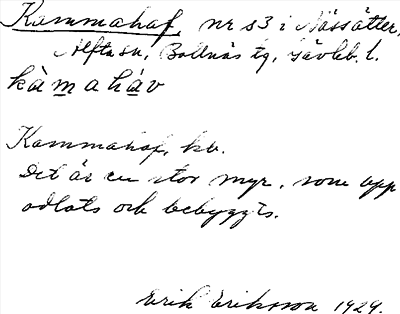 Kammahaf, nr s3 i Nässätter,
Alfta sn, Bollnäs tg, Gävleb. l.
kàmahàv
Kammahaf, kb.
Det är en stor myr, som upp
odlats och bebyggts.
Erik Eriksson 1929.